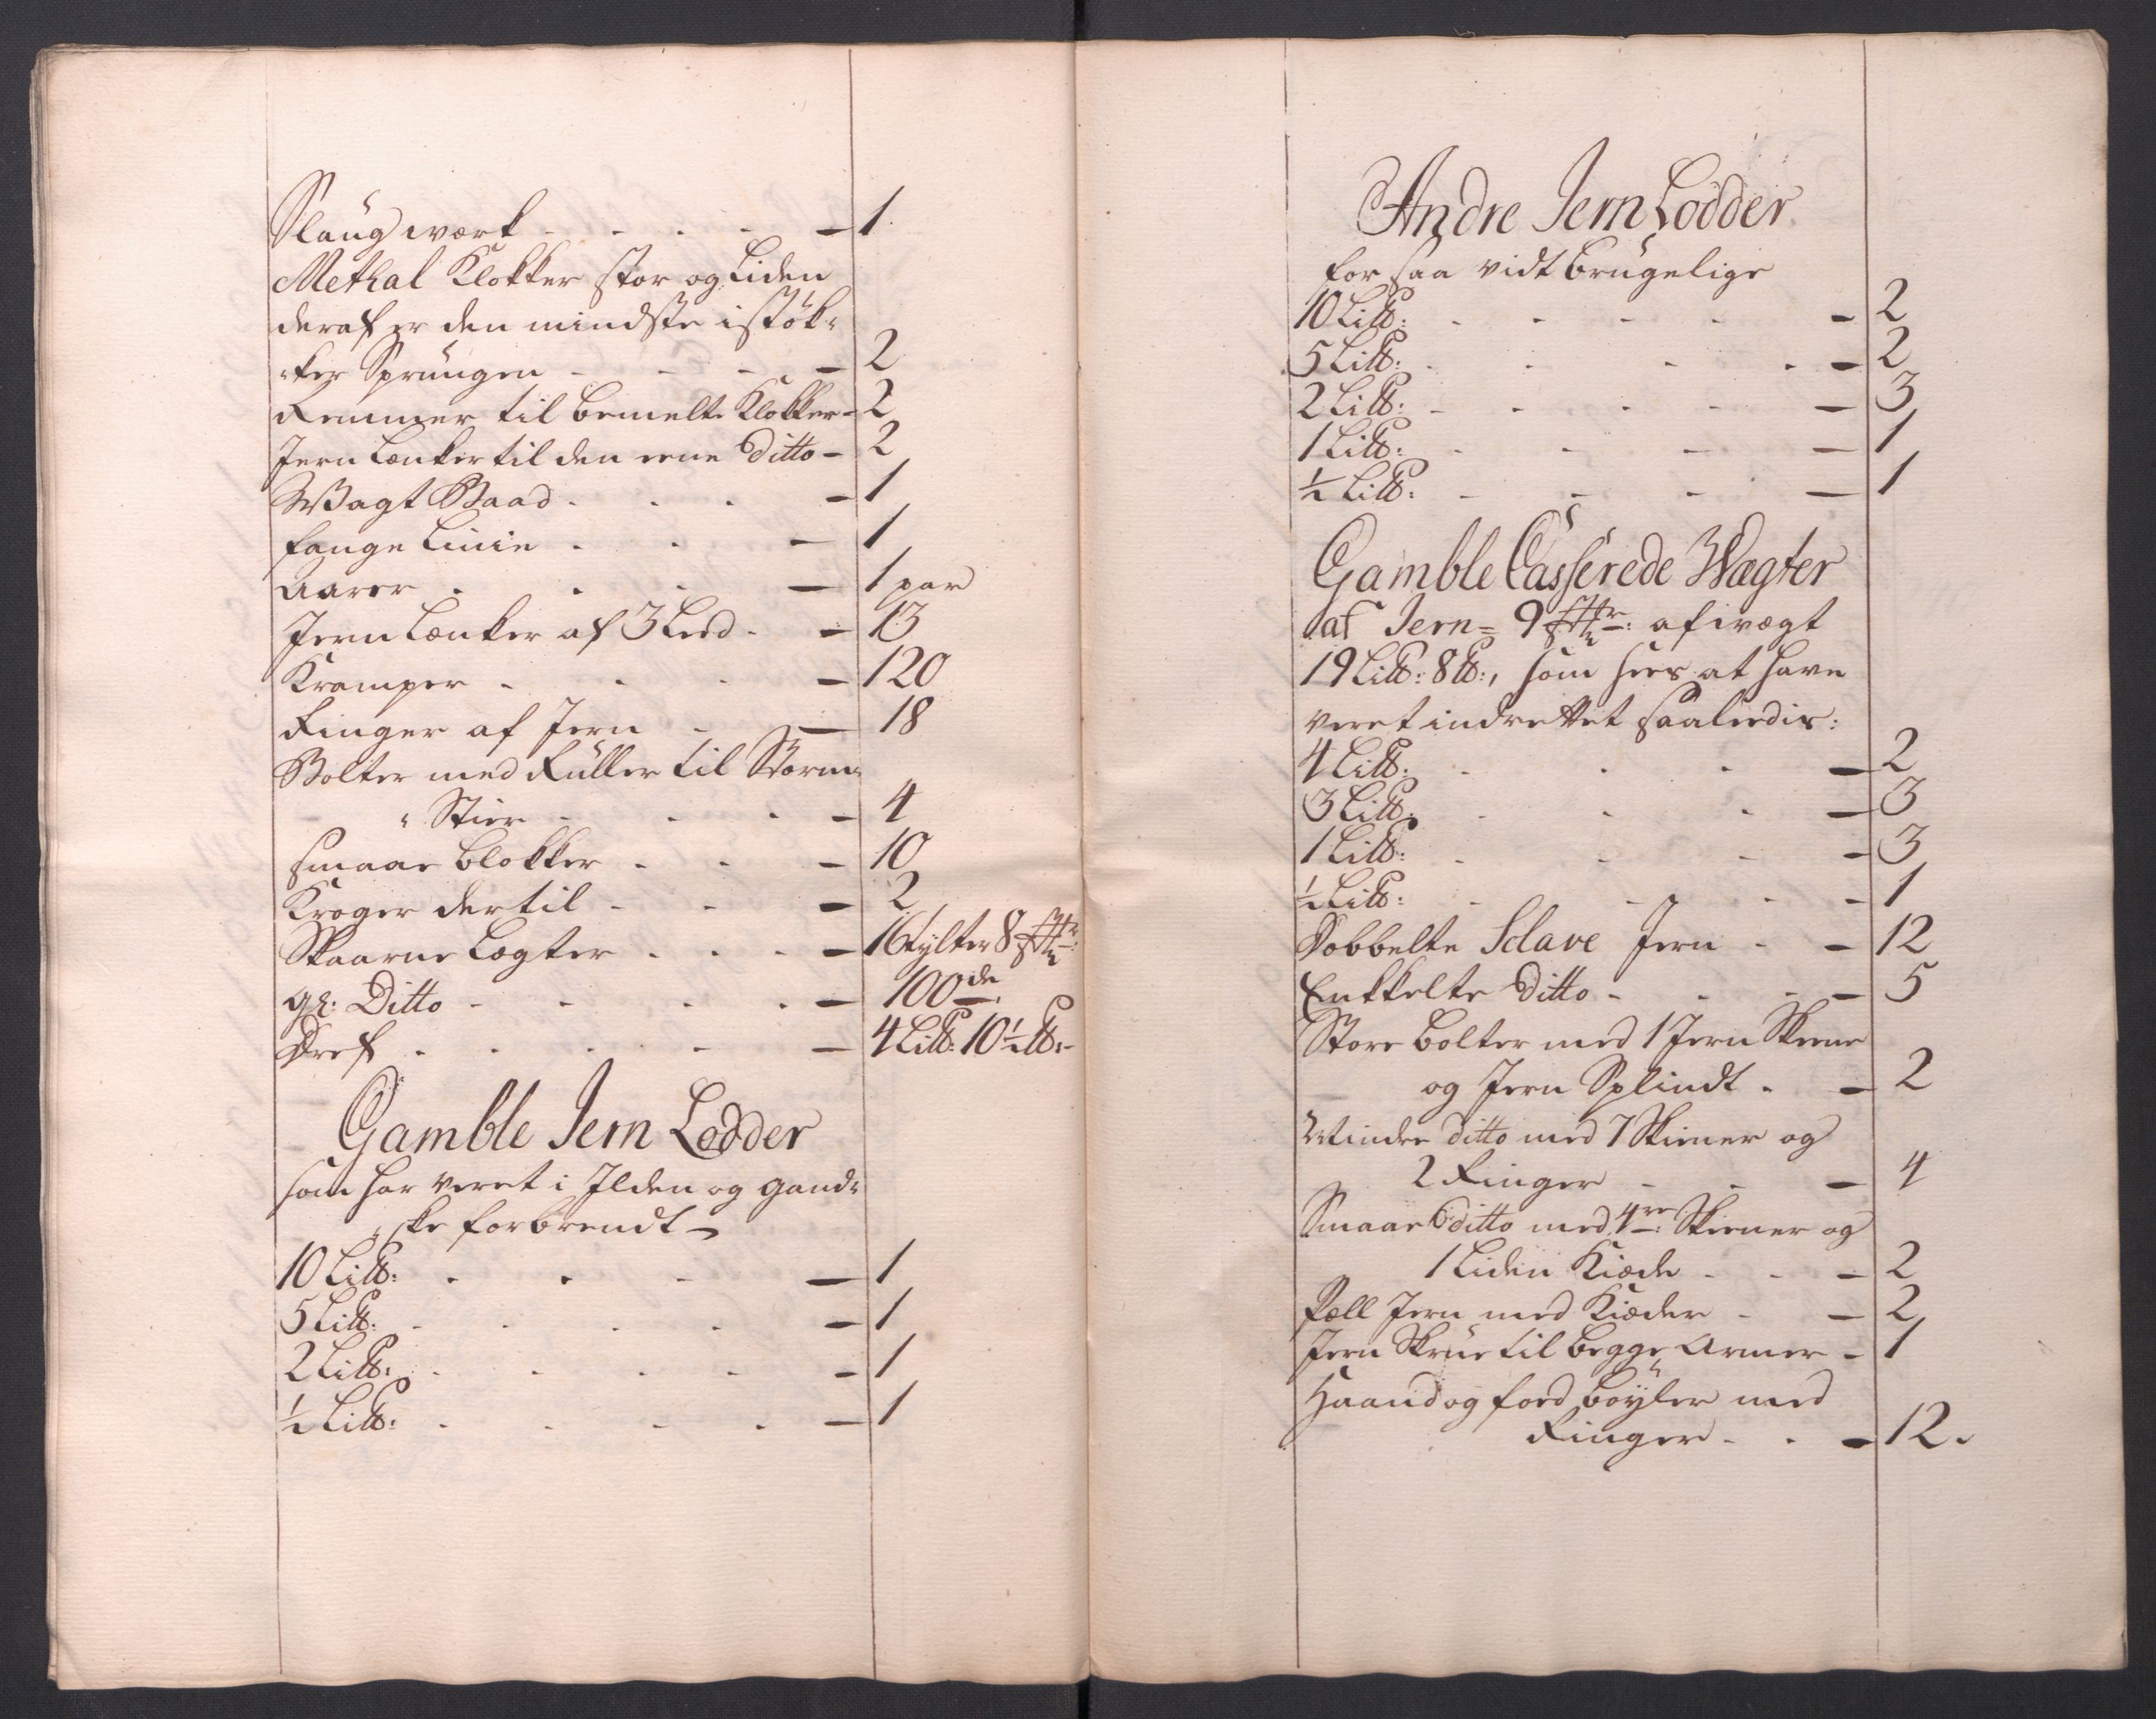 Slaug værk - - - - 1.
Methal Klokker stor og Liden
deraf er den mindste i støk-
ker Sprungen - - - - 2
Remmer til bemelte Klokker - 2
Jern Lænker til den eene Ditto - 2
Wagt Baad - - - - 1
fange Linie - - - 1
Aarer - - - - 1 par
Jern Lænker af 3 Leed - - 13
Kramper - - - - 120
Ringer af Jern - - 18
Bolter med Ruller til Storm-
Stier - - - - 4
smaae blokker - - - 10
Kroger dertil - - - 2
Skaarne Lægter - - - - 16 tylter 8 St:r
gl: Ditto - - - - - 100de
Dref - - - - - 4 Lit: 10½ lb:
Gamble Jern Lodder
som har veret i Ilden og gand-
ske forbrendt -
10 Lit: - - - - 1
5 Lit: - - - - - 1
2 Lit: - - - - - 1
½ Lit: - - - - - 1
Andre Jern Lodder
for saa vidt brugelige
10 Lit: - - - - - 2
5 Lit: - - - - - 2
2 Lit: - - - - - 3
1 Lit: - - - - 1
½ Lit: - - - - 1
Gamble Casserede Wægter
af Jern = 9 St:r af vægt
19 Lit: 8 lb:, som sees at have
veret indrettet saaledis:
4 Lit: - - - - 2
3 Lit: - - - - 3
1 Lit: - - - - 3
½ Lit: - - - - 1
Dobbelte Sclave Jern - - 12
Enkkelte Ditto - - - - 5
Store bolter med 1 Jern Skeene
og Jern Splindt - - 2
Mindre ditto med 7 Skiener og
2 Ringer - - - 4
Smaae ditto med 4re: Skiener og
1 Liden Kiæde - - - 2
Jern med Kiæder - - 2
Jern Skrue til begge Armer - 1
Haand og foed bøyler med
Ringer - - - 12.